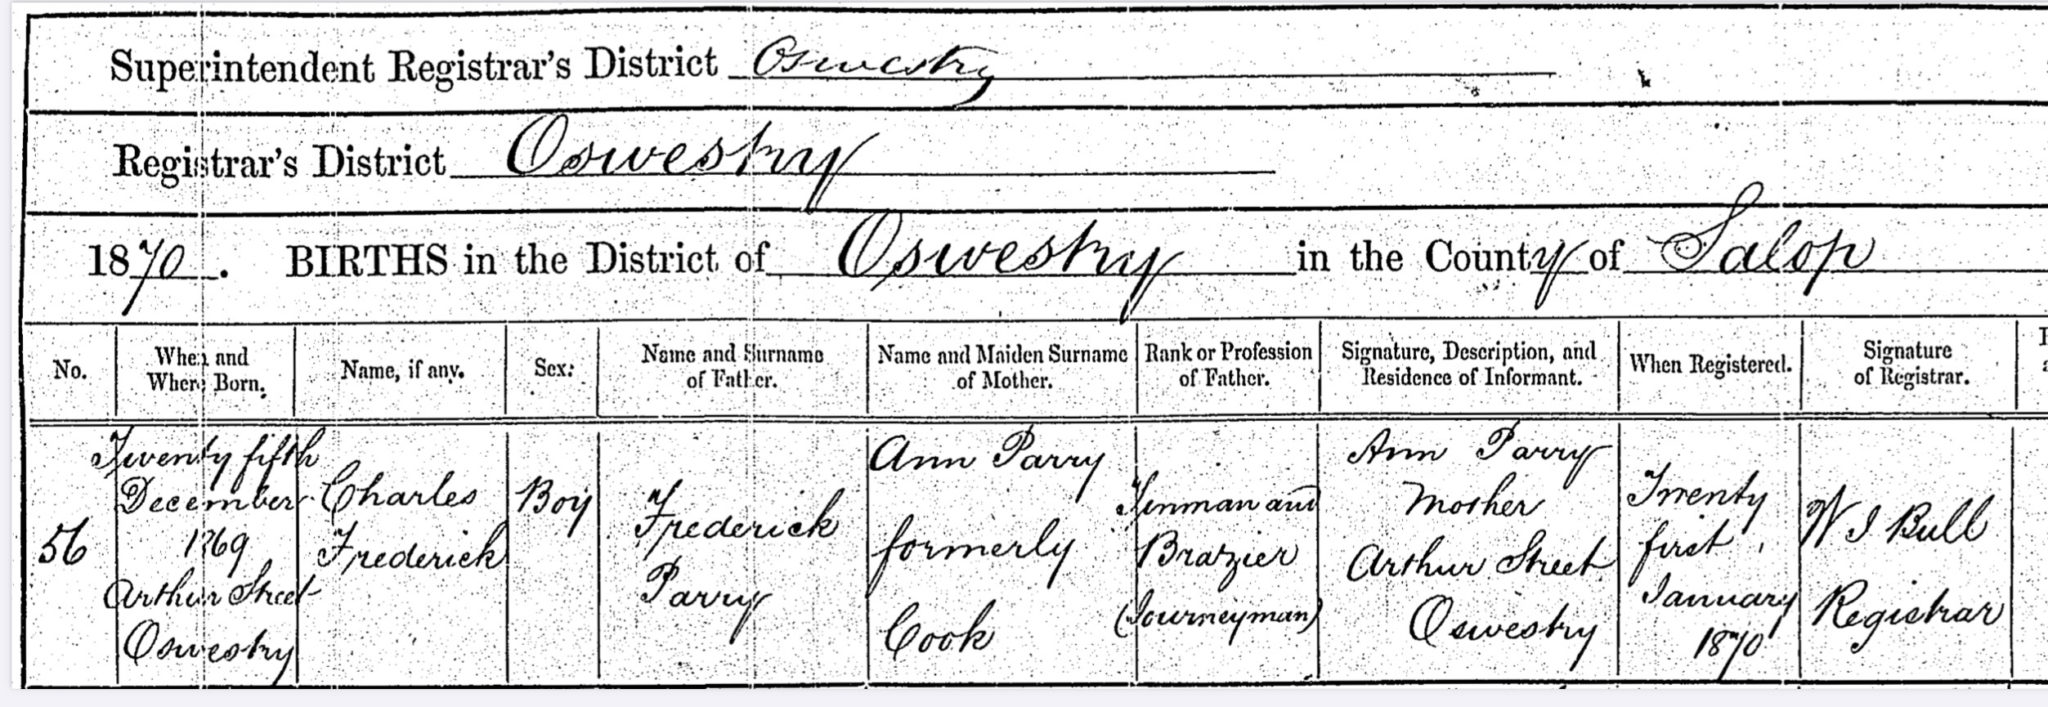 Superintendent Registrar's District Oswestry
Registrar's District Oswestry
1870. BIRTHS in the District of Oswestry in the County of Salop
No.
When and
Where Born.
Name, if any.
Sex.
Name and Surname
of Father.
Name and Maiden Surname
of Mother.
Rank or Profession
of Father.
Signature, Description, and
Residence of Informant.
When Registered.
Signature
of Registrar.
56
Twenty fifth
December
1869
Arthur Street
Oswestry
Charles
Frederick
Boy
Frederick
Parry
Ann Parry
formerly
Cook
Tinman and
Brazier
(Journeyman)
Ann Parry
Mother
Arthur Street
Oswestry
Twenty
first
January
1870
W J Bull
Registrar